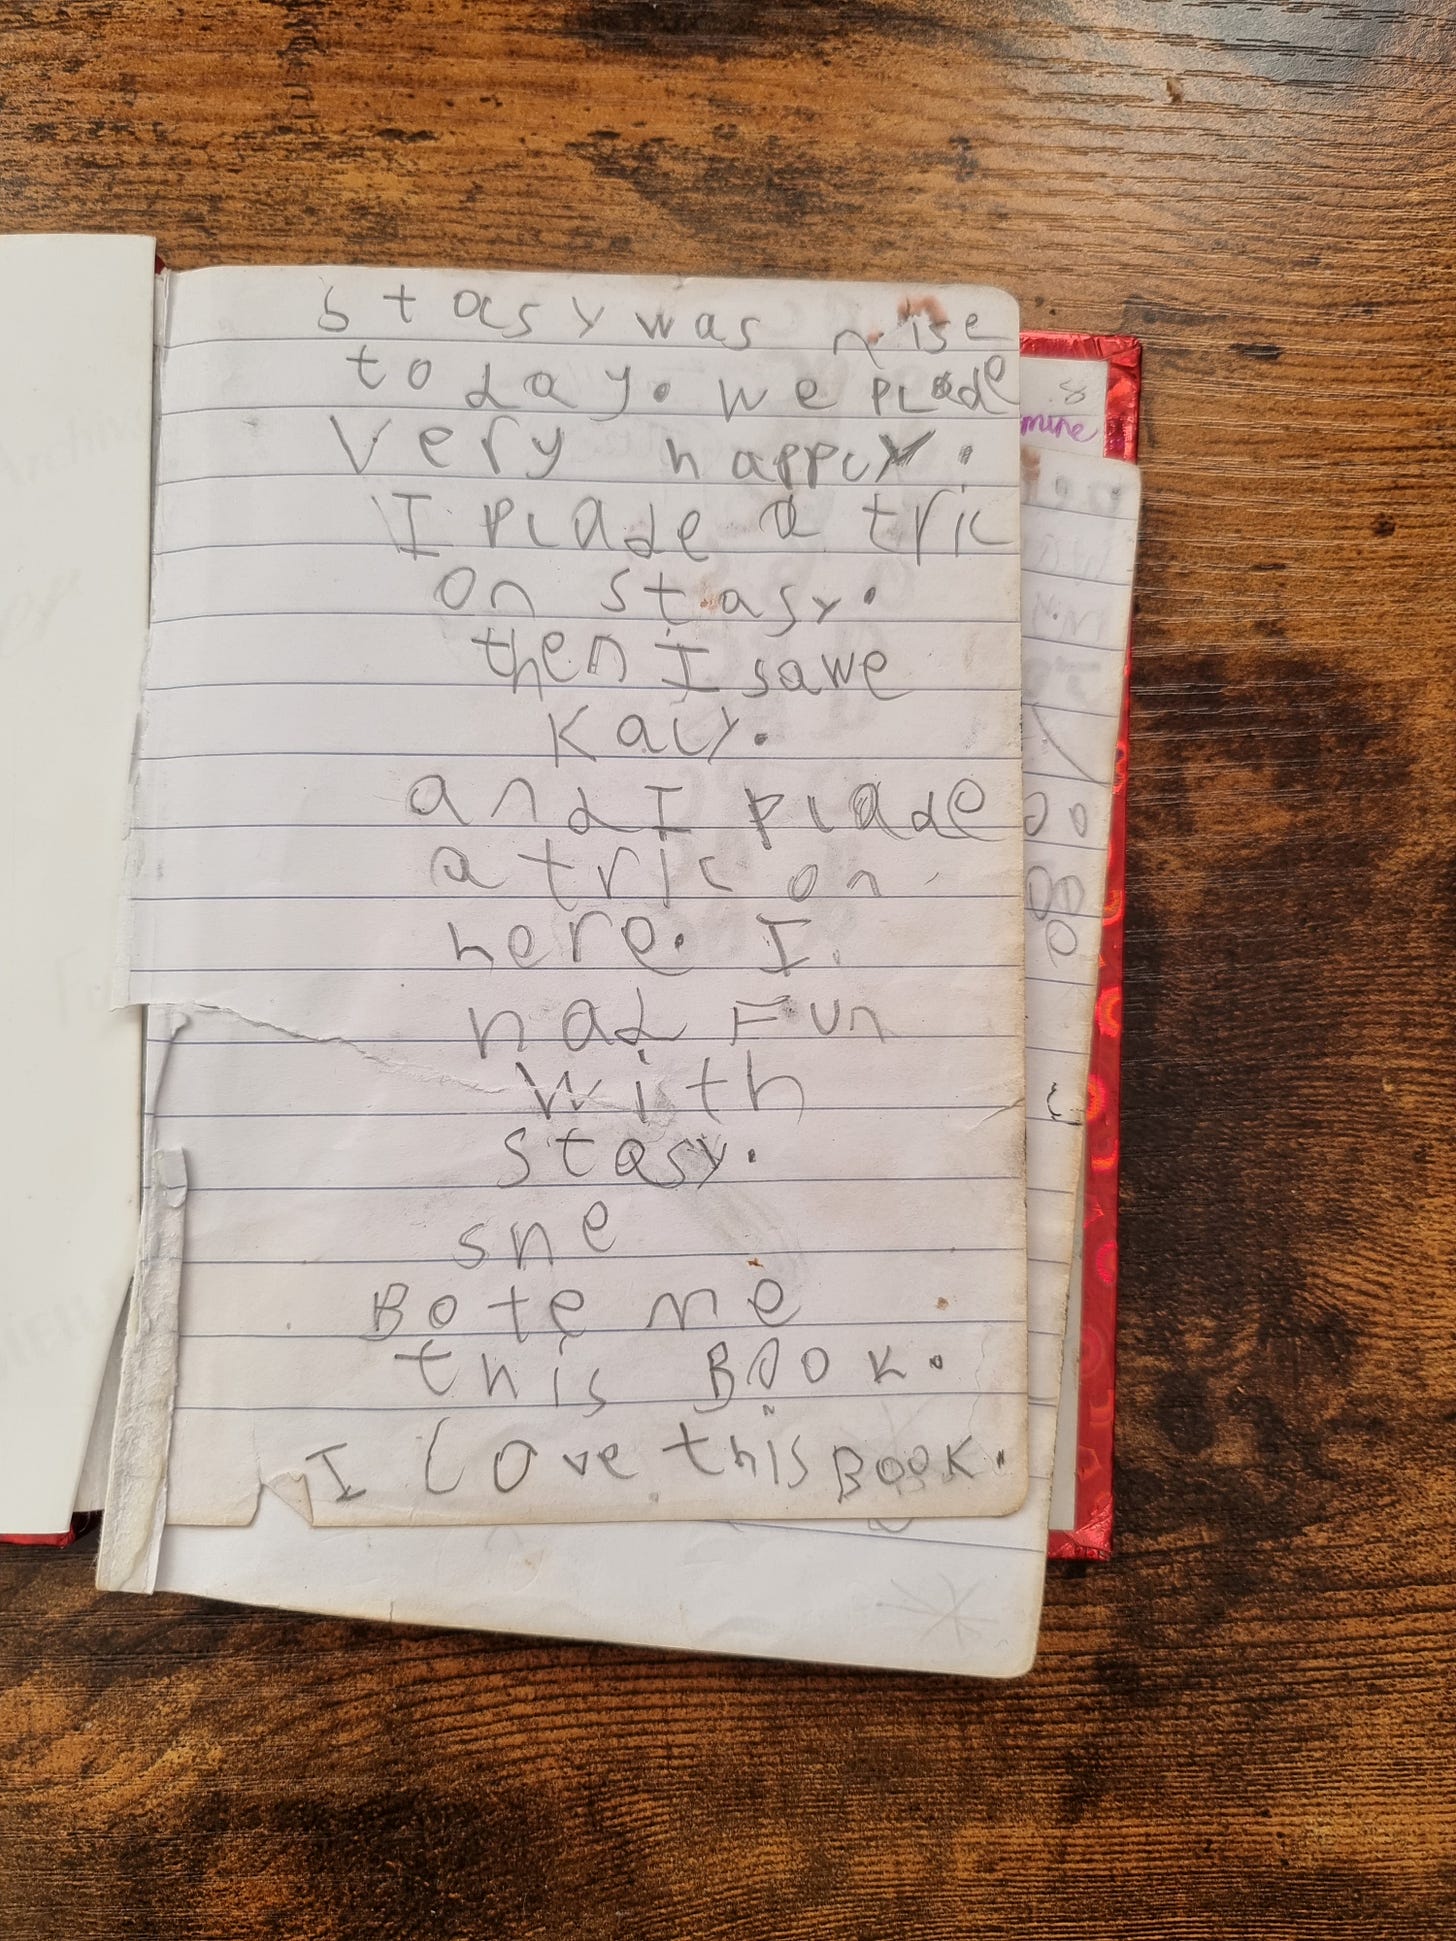 stasy was nise
today. we plade
very happy.
I plade a tric
on stasy.
then I sawe
Kaly.
and I plade
a tric on
here. I
had Fun
with
stasy.
she
Bote me
this Book.
I love this Book.
mine